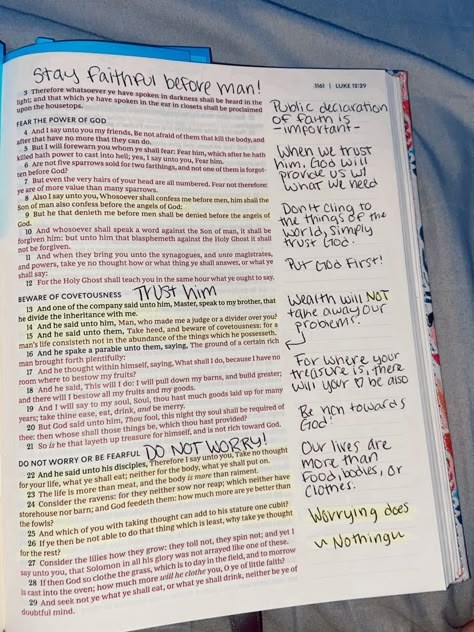 1161 | LUKE 12:29
Stay faithful before man!
3 Therefore whatsoever ye have spoken in darkness shall be heard in the
light; and that which ye have spoken in the ear in closets shall be proclaimed
upon the housetops.
FEAR THE POWER OF GOD
4 And I say unto you my friends, Be not afraid of them that kill the body, and
after that have no more that they can do.
5 But I will forewarn you whom ye shall fear: Fear him, which after he hath
killed hath power to cast into hell; yea, I say unto you, Fear him.
6 Are not five sparrows sold for two farthings, and not one of them is forgot-
ten before God?
7 But even the very hairs of your head are all numbered. Fear not therefore:
ye are of more value than many sparrows.
8 Also I say unto you, Whosoever shall confess me before men, him shall the
Son of man also confess before the angels of God:
9 But he that denieth me before men shall be denied before the angels of
God.
10 And whosoever shall speak a word against the Son of man, it shall be
forgiven him: but unto him that blasphemeth against the Holy Ghost it shall
not be forgiven.
11 And when they bring you unto the synagogues, and unto magistrates,
and powers, take ye no thought how or what thing ye shall answer, or what ye
shall say:
12 For the Holy Ghost shall teach you in the same hour what ye ought to say.
BEWARE OF COVETOUSNESS
TRUST him
13 And one of the company said unto him, Master, speak to my brother, that
he divide the inheritance with me.
14 And he said unto him, Man, who made me a judge or a divider over you?
15 And he said unto them, Take heed, and beware of covetousness: for a
man's life consisteth not in the abundance of the things which he possesseth.
16 And he spake a parable unto them, saying, The ground of a certain rich
man brought forth plentifully:
17 And he thought within himself, saying, What shall I do, because I have no
room where to bestow my fruits?
18 And he said, This will I do: I will pull down my barns, and build greater;
and there will I bestow all my fruits and my goods.
19 And I will say to my soul, Soul, thou hast much goods laid up for many
years; take thine ease, eat, drink, and be merry.
20 But God said unto him, Thou fool, this night thy soul shall be required of
thee: then whose shall those things be, which thou hast provided?
21 So is he that layeth up treasure for himself, and is not rich toward God.
DO NOT WORRY OR BE FEARFUL
DO NOT WORRY!
22 And he said unto his disciples, Therefore I say unto you, Take no thought
for your life, what ye shall eat; neither for the body, what ye shall put on.
23 The life is more than meat, and the body is more than raiment.
24 Consider the ravens: for they neither sow nor reap; which neither have
storehouse nor barn; and God feedeth them: how much more are ye better than
the fowls?
25 And which of you with taking thought can add to his stature one cubit?
26 If ye then be not able to do that thing which is least, why take ye thought
for the rest?
27 Consider the lilies how they grow: they toil not, they spin not; and yet I
say unto you, that Solomon in all his glory was not arrayed like one of these.
28 If then God so clothe the grass, which is to day in the field, and to morrow
is cast into the oven; how much more will he clothe you, O ye of little faith?
29 And seek not ye what ye shall eat, or what ye shall drink, neither be ye of
doubtful mind.
Public declaration
of faith is
-important-
When we trust
him, God will
provide us w/
what we need
Don't cling to
the things of the
world, simply
trust God.
Put God First!
Wealth will NOT
take away our
problems.
For where your
treasure is, there
will your ♡ be also
Be rich towards
God!
Our lives are
more than
food, bodies, or
clothes.
Worrying does
Nothing